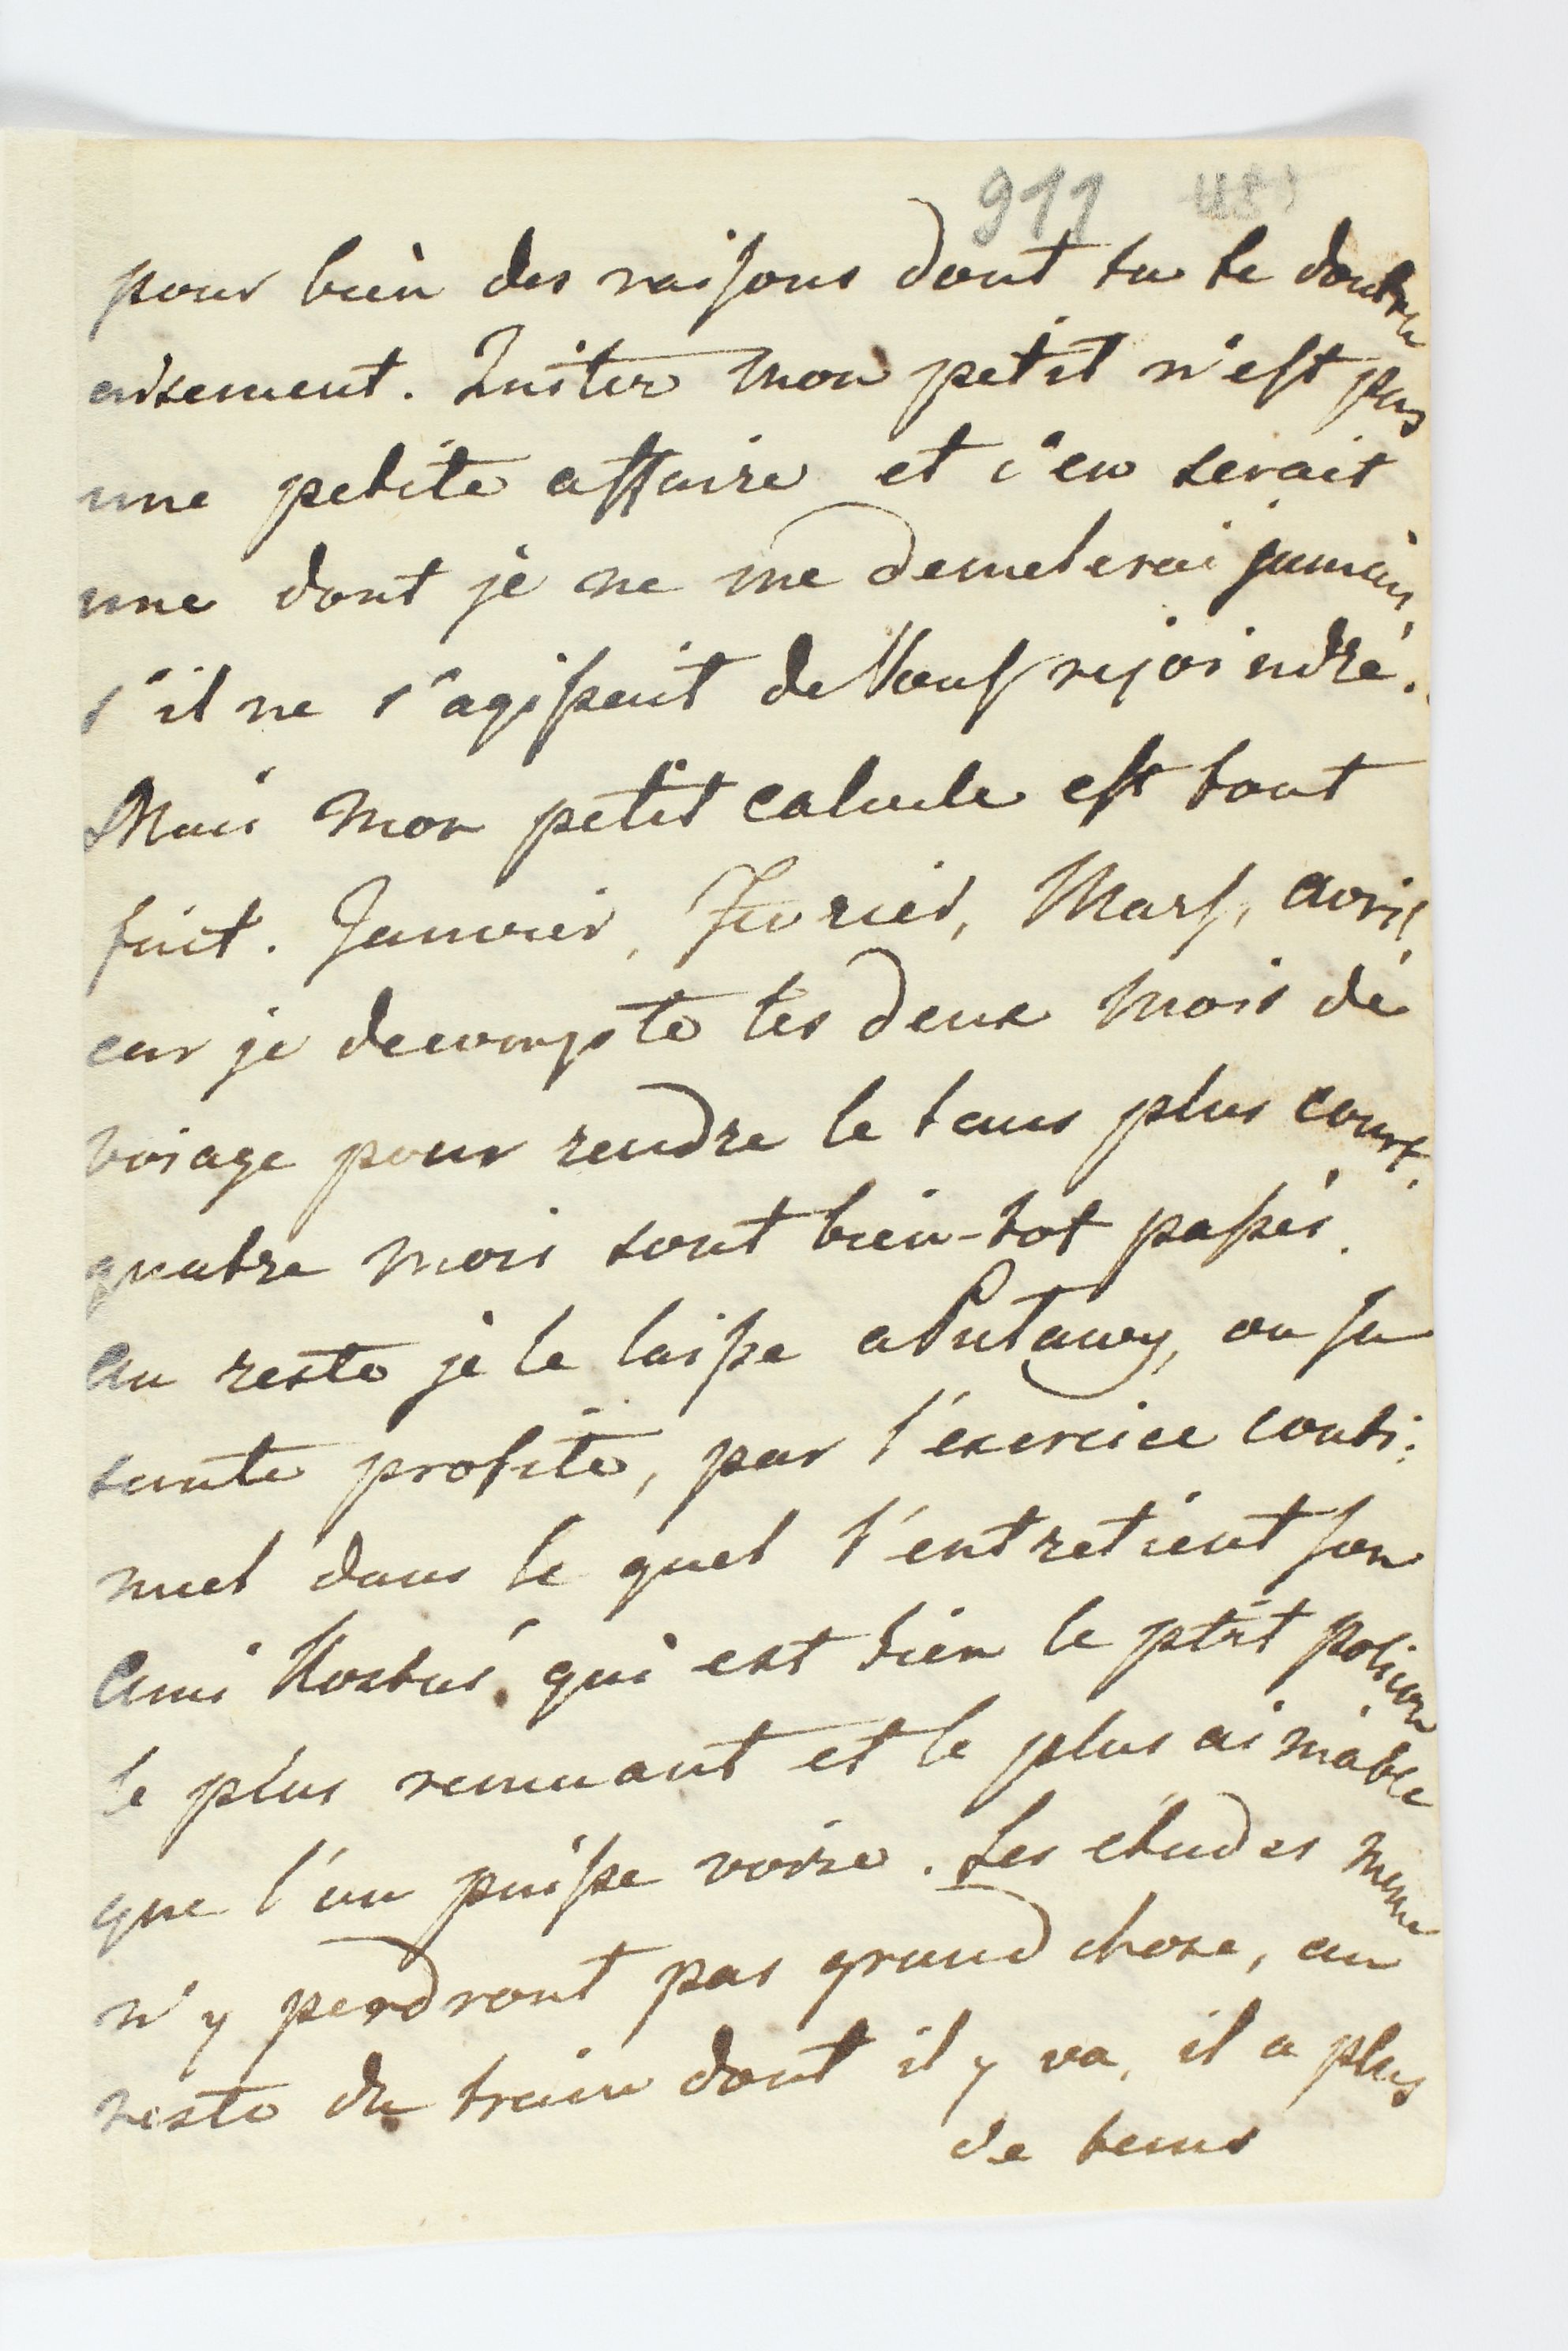 911
pour bien des raisons dont tu te doute
aisement. Quiter mon petit n'est pas
une petite affaire et s'en serait
une dont je ne me demelerai jamais,
s'il ne s'agissait de Vous rejoindre.
Mais mon petit calcule est tout
fait. Janvier, Fevrier, Mars, avril,
car je decompte les deux mois de
voiage pour rendre le tems plus court.
quatre mois sont bien-tot passés.
Au reste je le laisse a Putawy, ou sa
sante profite, par l'exercice conti:
nuel dans le quel l'entretient son
Ami Kostus, qui est bien le ptit polisson
le plus remuant et le plus aimable
que l'on puisse voire. Les etudes meme
n'y perdront pas grand chose, au
reste du train dont il y va, il a plus
de tems